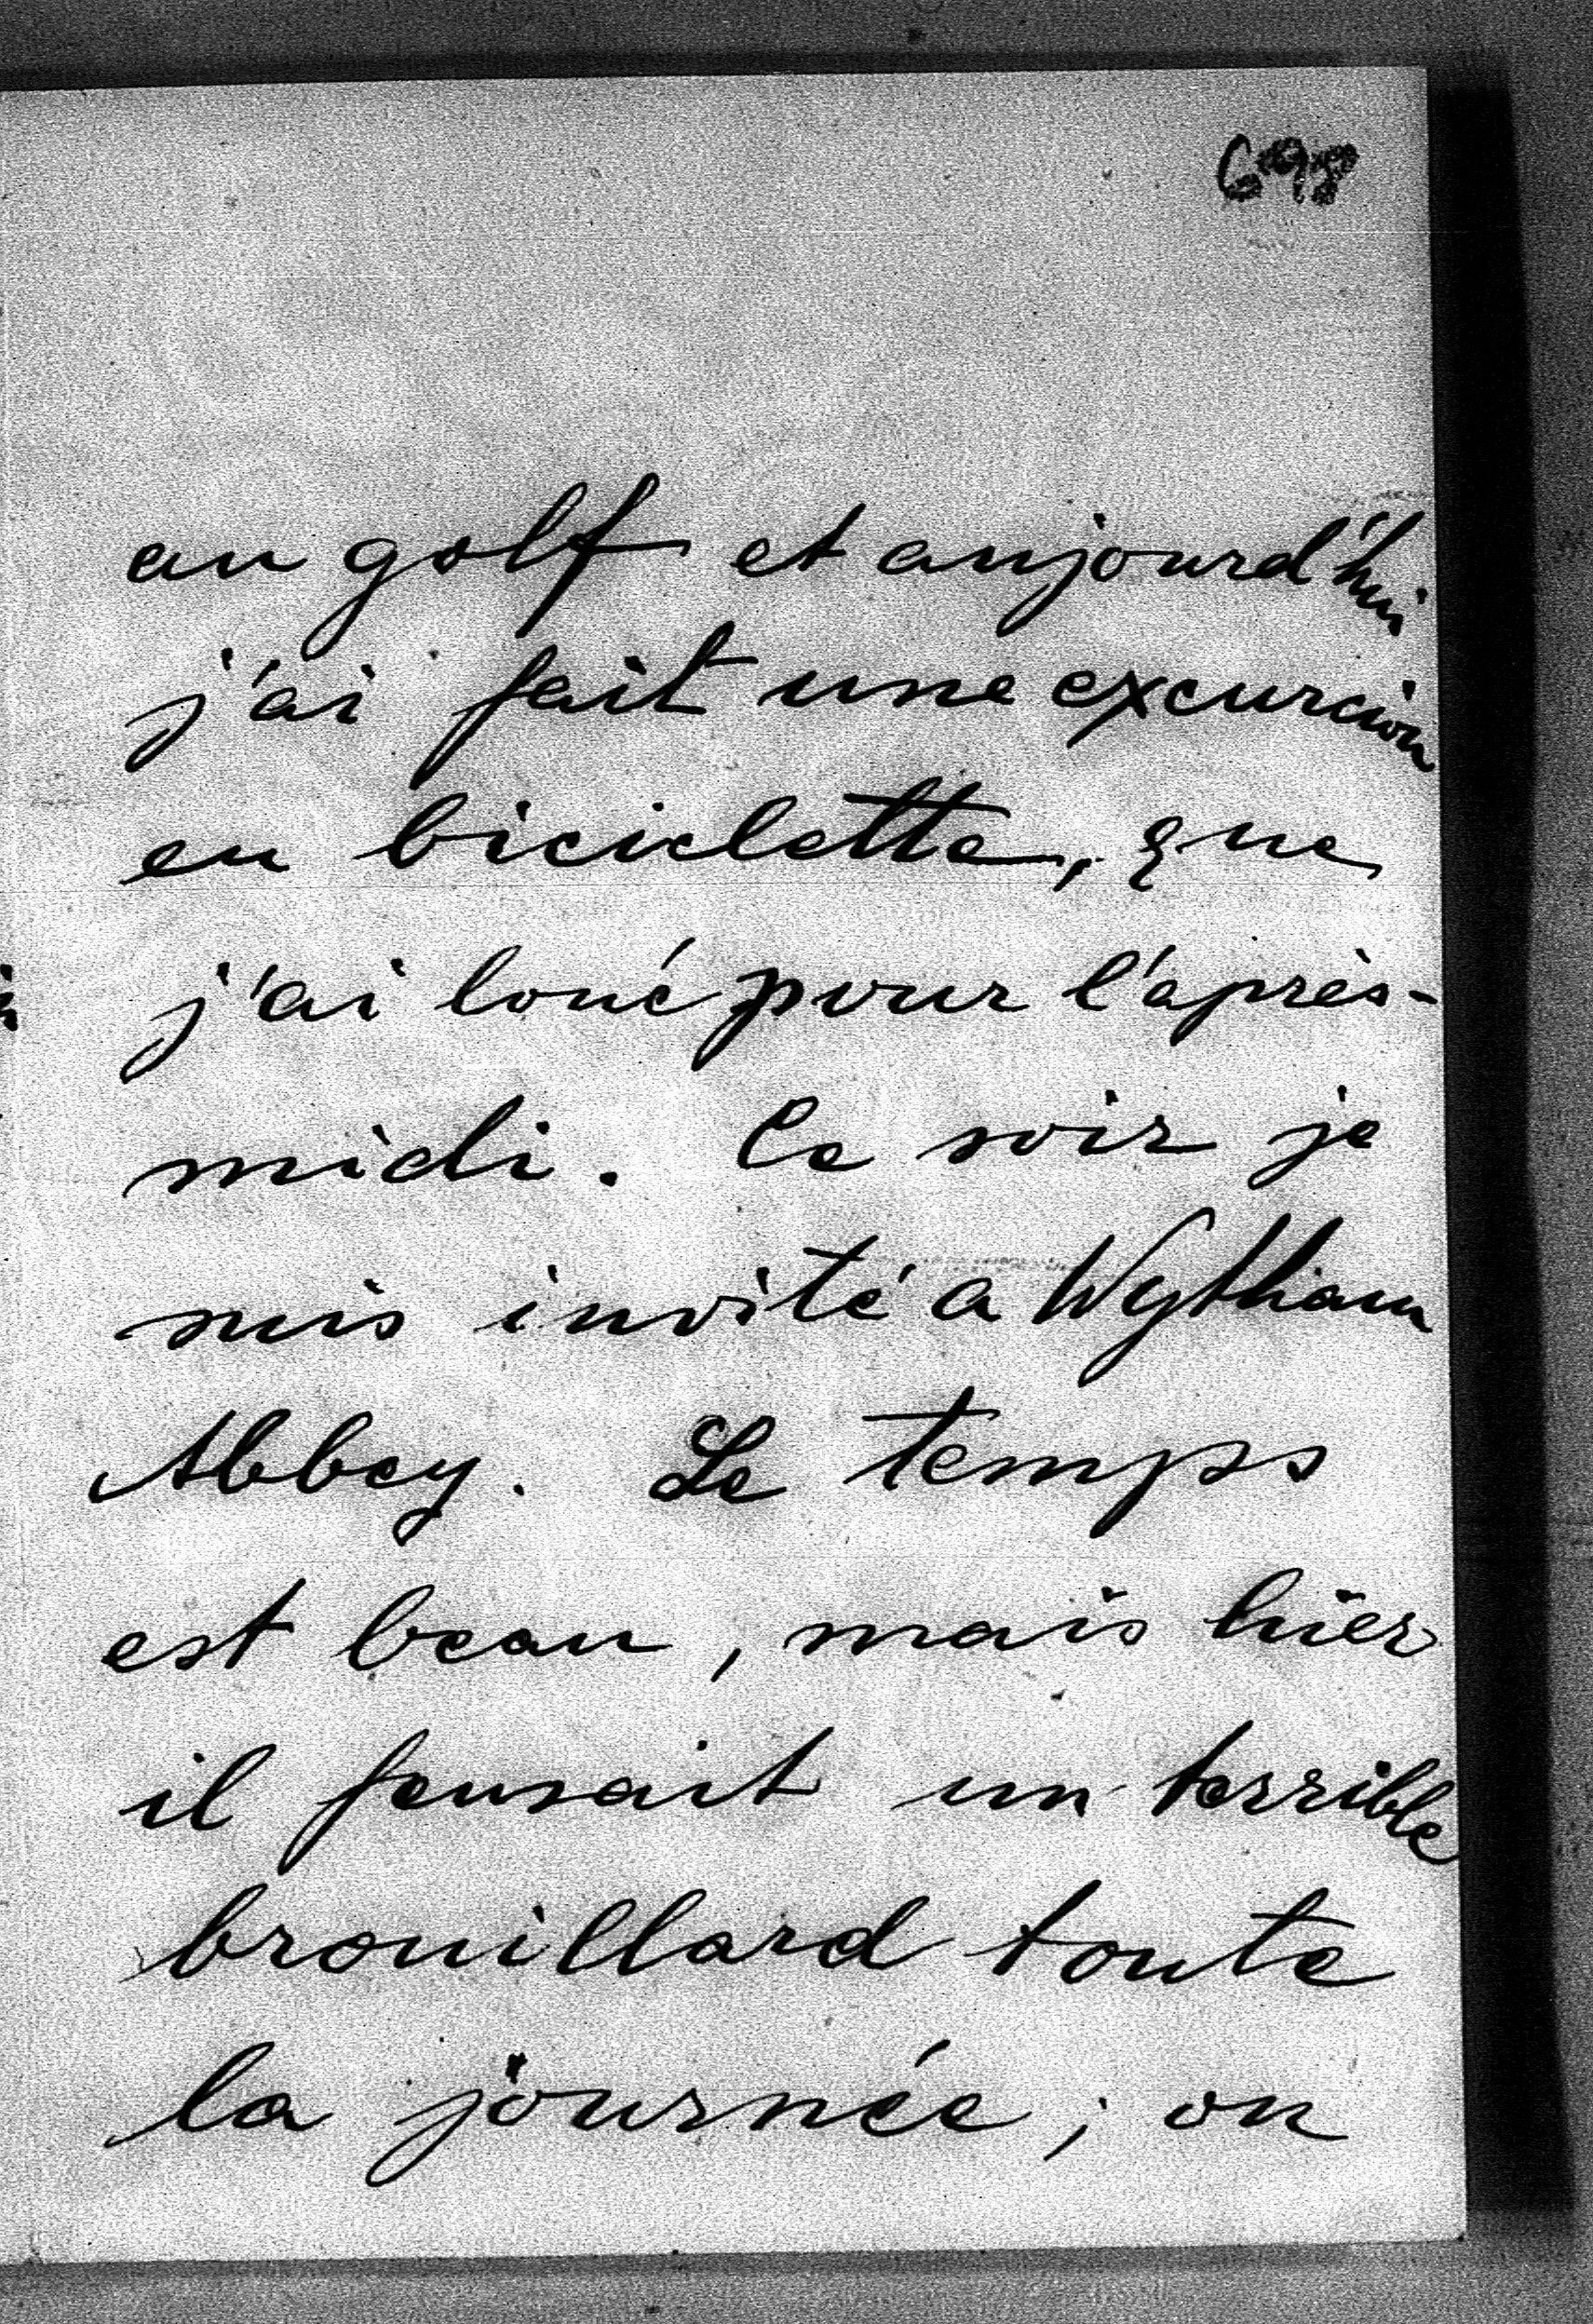 au golf et aujourd'hui
j'ai fait une excurcion
en biciclette, que
j'ai loué pour l'après-
midi. Ce soir je
suis invité a Wytham
Abbey. Le temps
est beau, mais hier
il fensait un terrible
brouillard toute
la journée; on